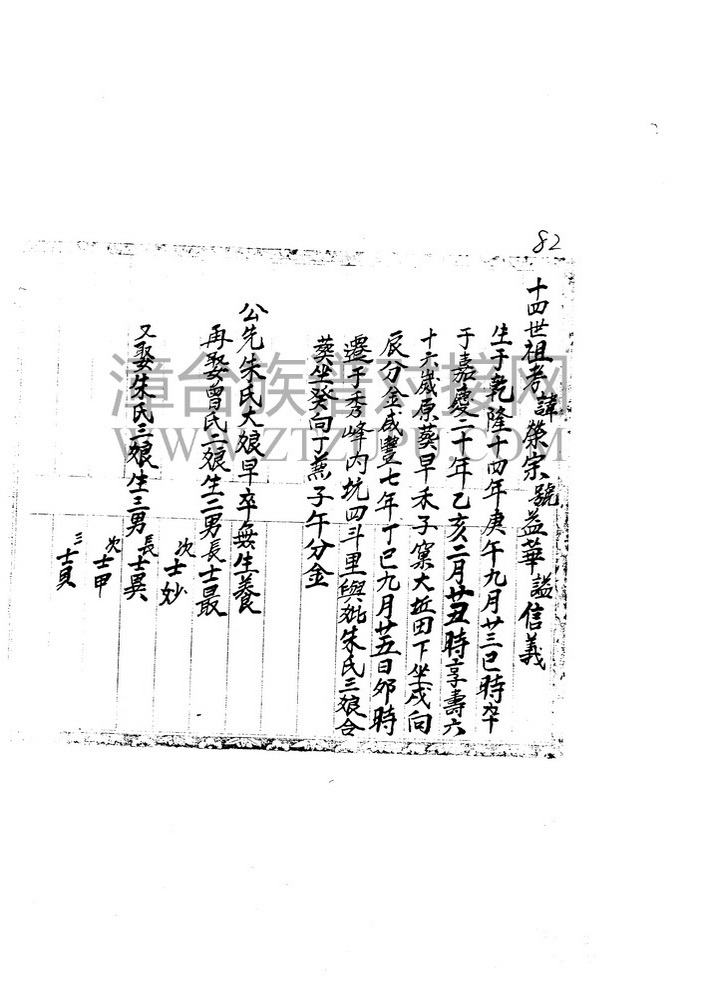 82
十四世祖考諱榮宗號益華謚信義
生于乾隆十四年庚午九月廿三巳時卒
于嘉慶二十年乙亥二月廿丑時享壽六
十六歲原葬早禾子窠大坵田下坐戌向
辰分金咸豐七年丁巳九月廿五日卯時
遷于秀峰內坑四斗里與妣朱氏三娘合
葬坐癸向丁兼子午分金
公先朱氏大娘早卒無生養
再娶曾氏二娘生二男長士最
次士妙
又娶朱氏三娘生三男長士異
次士甲
三士貝
漳台族谱对接网
WWW.ZTZUPU.COM